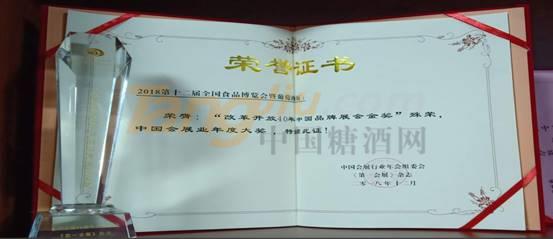 荣誉证书
2018第十二届全国食品博览会暨葡萄酒展:
荣膺:“改革开放40年中国品牌展会金奖”殊荣,
中国会展业年度大奖,特颁此证!
中国会展行业年会组委会
《第一会展》杂志
二〇一八年十二月
tangjiu.com
中国糖酒网
《第一会展》杂志